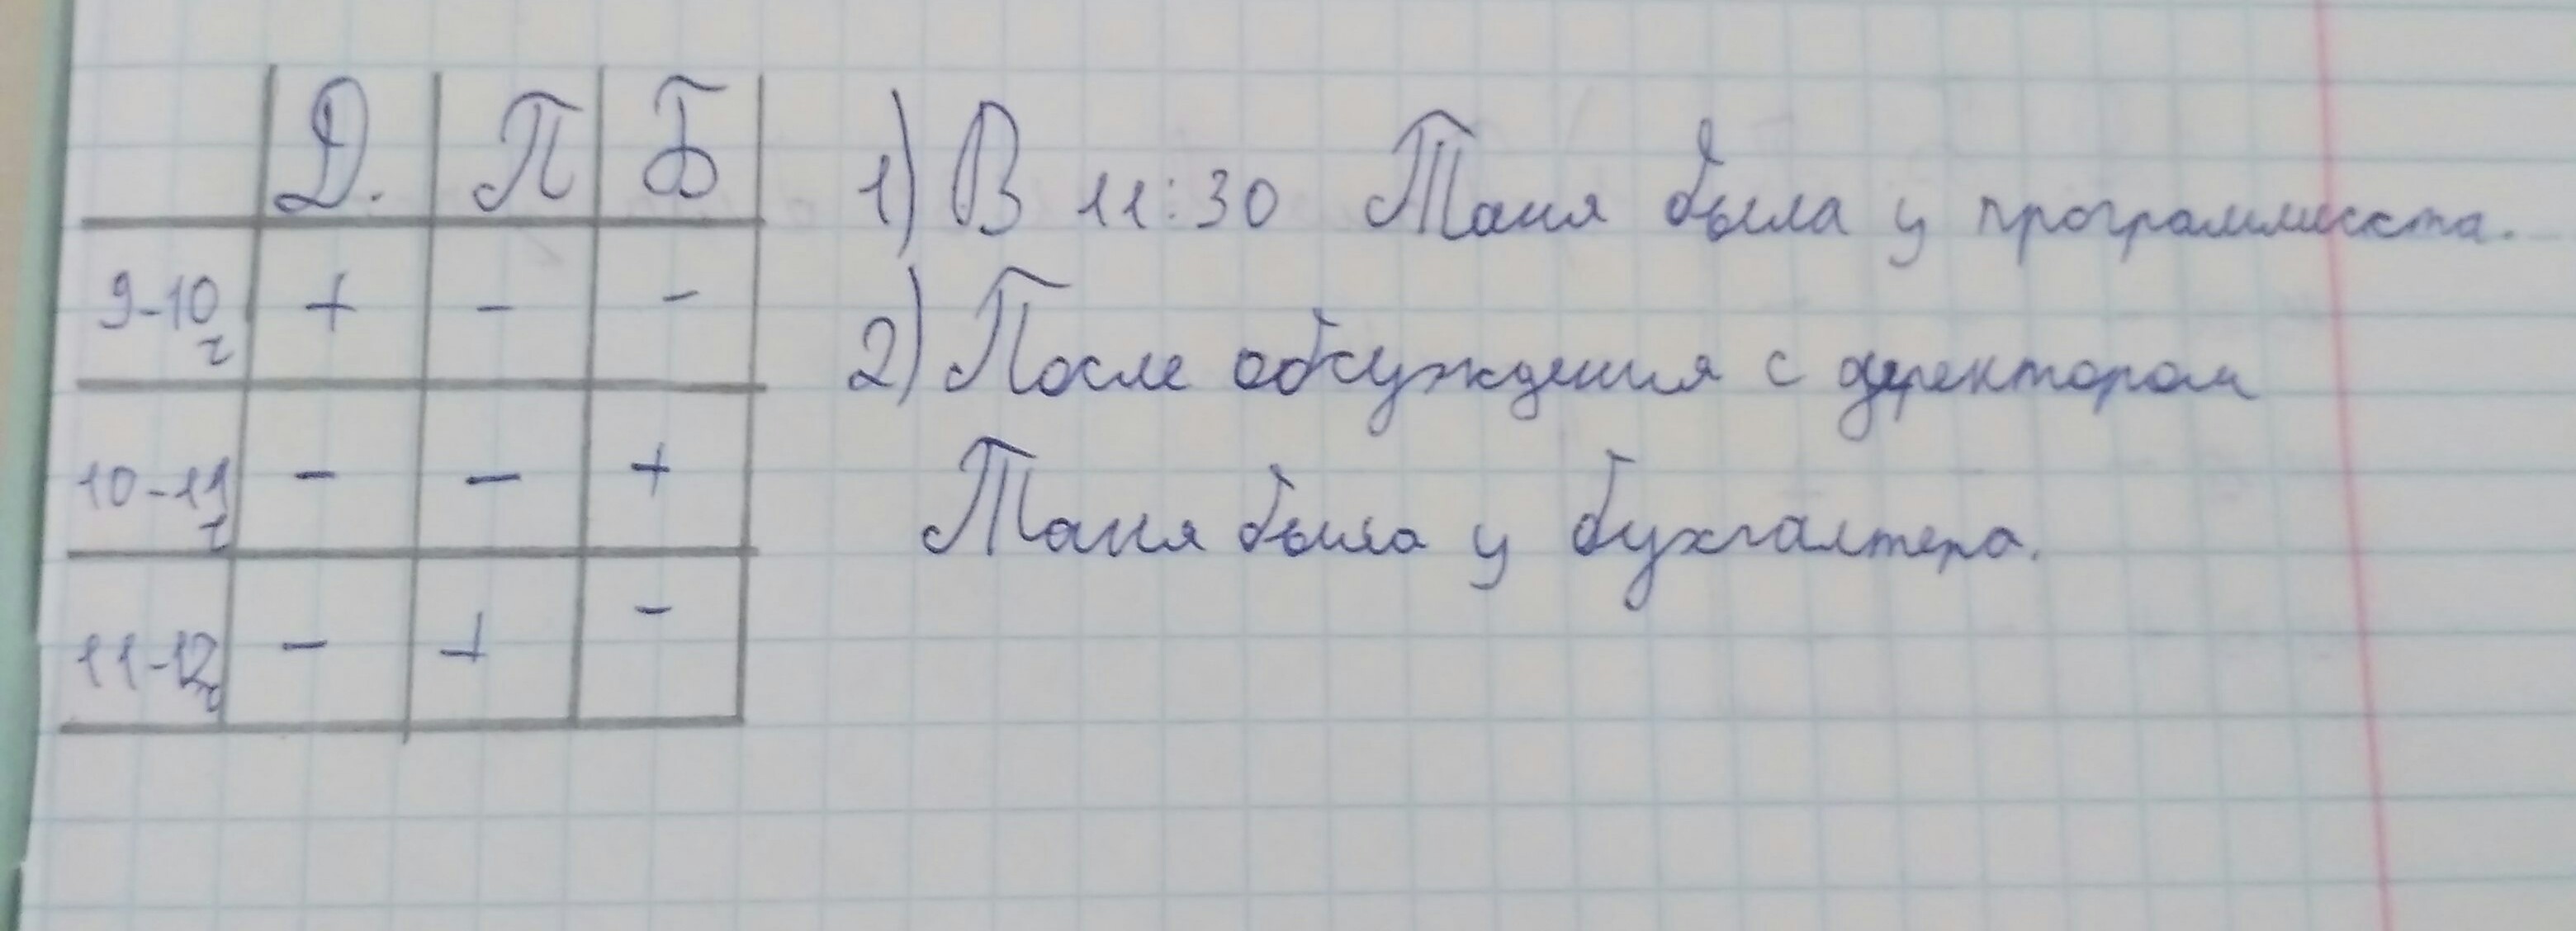 Д. П Б
9-10 ч + - -
10-11 ч - - +
11-12 ч - + -
1) В 11:30 Таня была у программиста.
2) После обсуждения с директором
Таня была у бухгалтера.